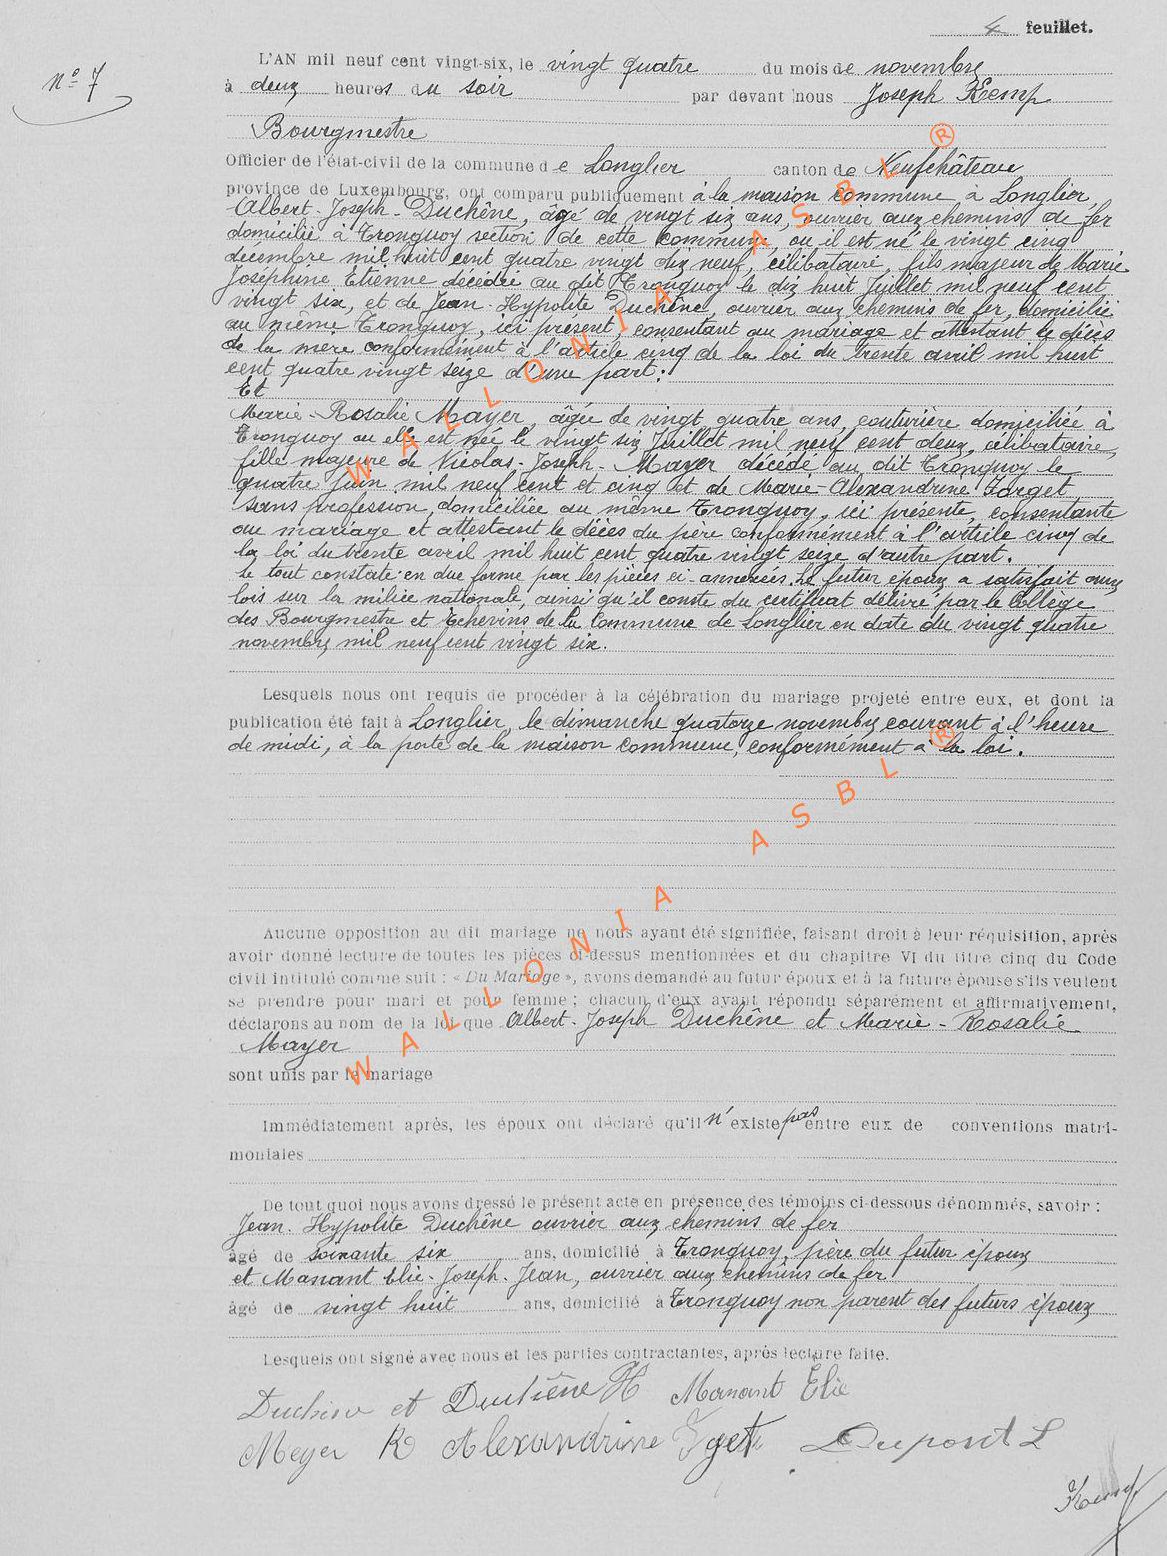 4 feuillet.
n° 7
L'AN mil neuf cent vingt-six, le vingt quatre du mois de novembre
à deux heures du soir par devant nous Joseph Kemp
Bourgmestre
Officier de l'état-civil de la commune de Longlier canton de Neufchâteau
province de Luxembourg, ont comparu publiquement à la maison commune à Longlier,
Albert-Joseph-Duchêne, âgé de vingt six ans, ouvrier aux chemins de fer
domicilié à Tronquoy section de cette commune, ou il est né le vingt cinq
décembre mil huit cent quatre vingt dix neuf, célibataire, fils majeur de Marie
Joséphine Etienne décédée au dit Tronquoy le dix huit Juillet mil neuf cent
vingt six, et de Jean-Hypolite Duchêne, ouvrier aux chemins de fer, domicilié
au même Tronquoy, ici présent, consentant au mariage et attestant le décès
de la mère conformément à l'article cinq de la loi du trente avril mil huit
cent quatre vingt seize d'une part:
Et
Marie-Rosalie Mayer, âgée de vingt quatre ans, couturière domiciliée à
Tronquoy ou elle est née le vingt six Juillet mil neuf cent deux, célibataire,
fille majeure de Nicolas-Joseph-Mayer décédé au dit Tronquoy le
quatre Juin mil neuf cent et cinq et de Marie-Alexandrine Forget,
sans profession, domiciliée au même Tronquoy, ici présente, consentante
au mariage et attestant le décès du père conformément à l'article cinq de
la loi du trente avril mil huit cent quatre vingt seize d'autre part.
Le tout constaté en due forme par les pièces ci-annexées. Le futur époux a satisfait aux
lois sur la milice nationale, ainsi qu'il conste du certificat délivré par le Collège
des Bourgmestre et Echevins de la Commune de Longlier en date du vingt quatre
novembre mil neuf cent vingt six.
Lesquels nous ont requis de procéder à la célébration du mariage projeté entre eux, et dont la
publication été fait à Longlier, le dimanche quatorze novembre courant à l'heure
de midi, à la porte de la maison commune, conformément à la loi.
Aucune opposition au dit mariage ne nous ayant été signifiée, faisant droit à leur réquisition, après
avoir donné lecture de toutes les pièces ci-dessus mentionnées et du chapitre VI du titre cinq du Code
civil intitulé comme suit : « Du Mariage », avons demandé au futur époux et à la future épouse s'ils veulent
se prendre pour mari et pour femme ; chacun d'eux ayant répondu séparément et affirmativement,
déclarons au nom de la loi que Albert-Joseph Duchêne et Marie-Rosalie
Mayer
sont unis par le mariage
Immédiatement après, les époux ont déclaré qu'il n'existe pas entre eux de conventions matri-
moniales
De tout quoi nous avons dressé le présent acte en présence des témoins ci-dessous dénommés, savoir :
Jean-Hypolite Duchêne ouvrier aux chemins de fer
âgé de soixante six ans, domicilié à Tronquoy, père du futur époux
et Manant Elie-Joseph-Jean, ouvrier aux chemins de fer
âgé de vingt huit ans, domicilié à Tronquoy non parent des futurs époux
Lesquels ont signé avec nous et les parties contractantes, après lecture faite.
Duchêne et Duchêne H Manant Elie
Meyer R Alexandrine Dupont L
Kemp
WALLONIA ASBL ®
WALLONIA ASBL ®